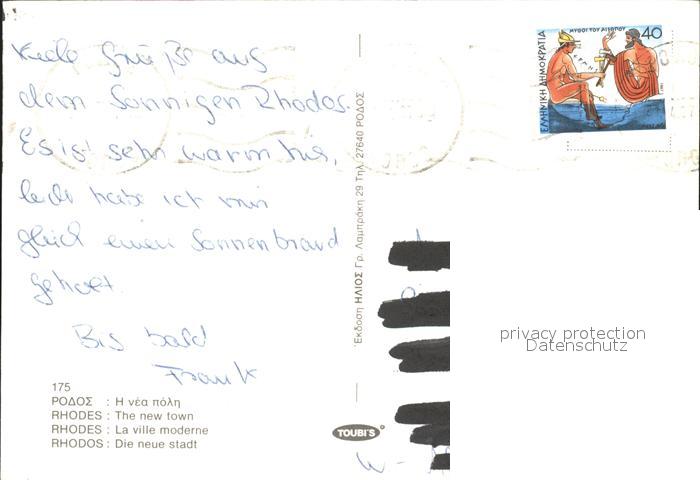 Viele Grüße aus
dem Sonnigen Rhodos.
Es ist sehr warm hier,
habe ich mir
gleich einen Sonnenbrand
geholt.
Bis bald
Frank
175
ΡΟΔΟΣ : Η νέα πόλη
RHODES : The new town
RHODES : La ville moderne
RHODOS : Die neue stadt
Έκδοση ΗΛΙΟΣ Γρ. Λαμπράκη 29 Τηλ. 27640 ΡΟΔΟΣ
TOUBI'S
ΜΥΘΟΙ ΤΟΥ ΑΙΣΩΠΟΥ
40
ΕΛΛΗΝΙΚΗ ΔΗΜΟΚΡΑΤΙΑ
privacy protection
Datenschutz
W -